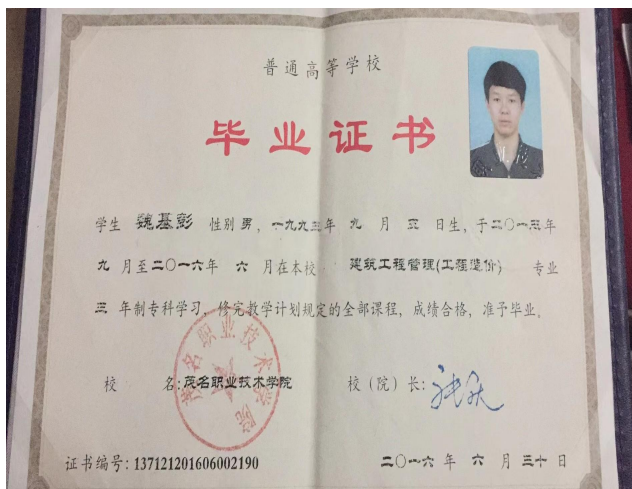 普通高等学校
毕业证书
学生 魏基彭 性别 男，一九九三年 九 月 三 日生，于二〇一三年
九 月至二〇一六年 六 月在本校 建筑工程管理(工程造价) 专业
三 年制专科学习，修完教学计划规定的全部课程，成绩合格，准予毕业。
茂名职业技术学院
校 名:茂名职业技术学院 校（院）长:
证书编号: 137121201606002190 二〇一六 年 六 月 三十 日